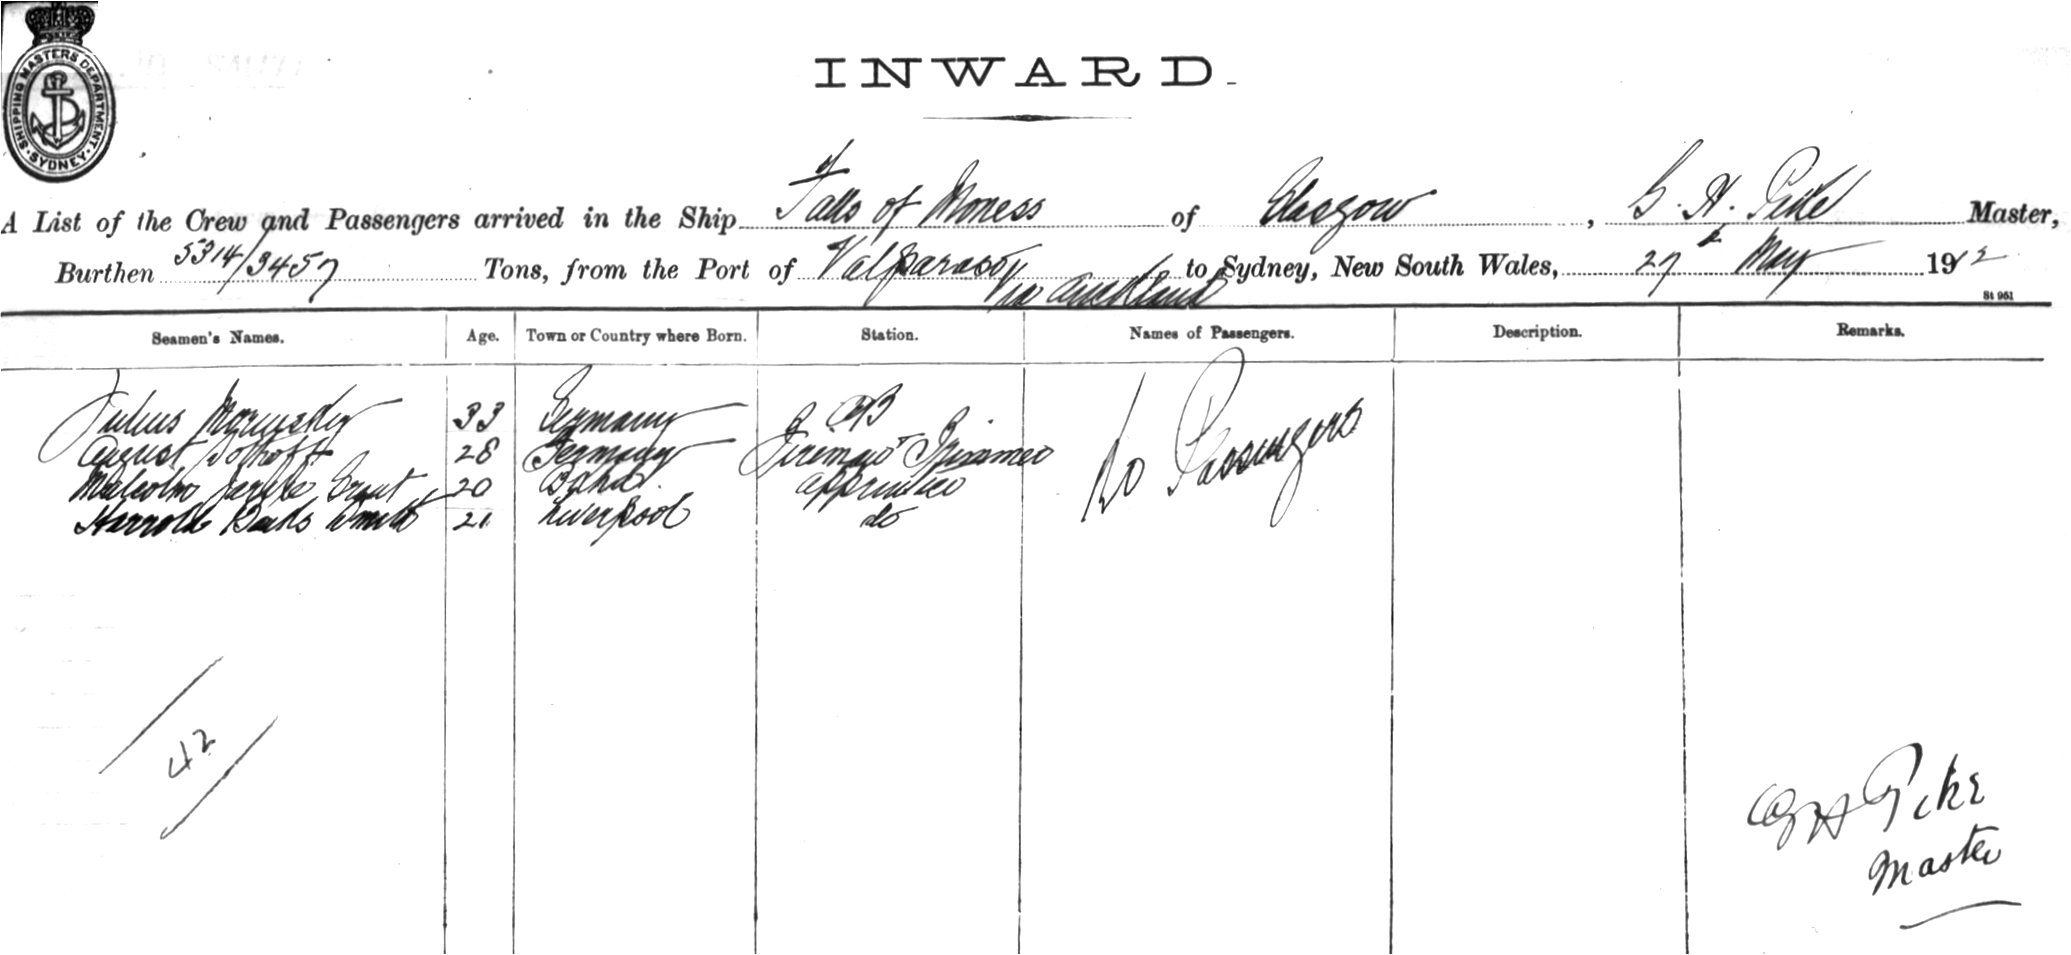 SHIPPING MASTERS DEPARTMENT
SYDNEY
INWARD.
A List of the Crew and Passengers arrived in the Ship Falls of Moness of Glasgow, G. H. Pike Master,
Burthen 5314/3457 Tons, from the Port of Valparaso to Sydney, New South Wales, 27th May 1912
Via Auckland
St 961
Seamen's Names. Age. Town or Country where Born. Station. Names of Passengers. Description. Remarks.
Julius 33 Germany AB No Passengers
August 28 Germany Fireman & Trimmer
Malcolm Grant 20 apprentice
Harrold Smith 21 Liverpool do
42
G H Pike
Master